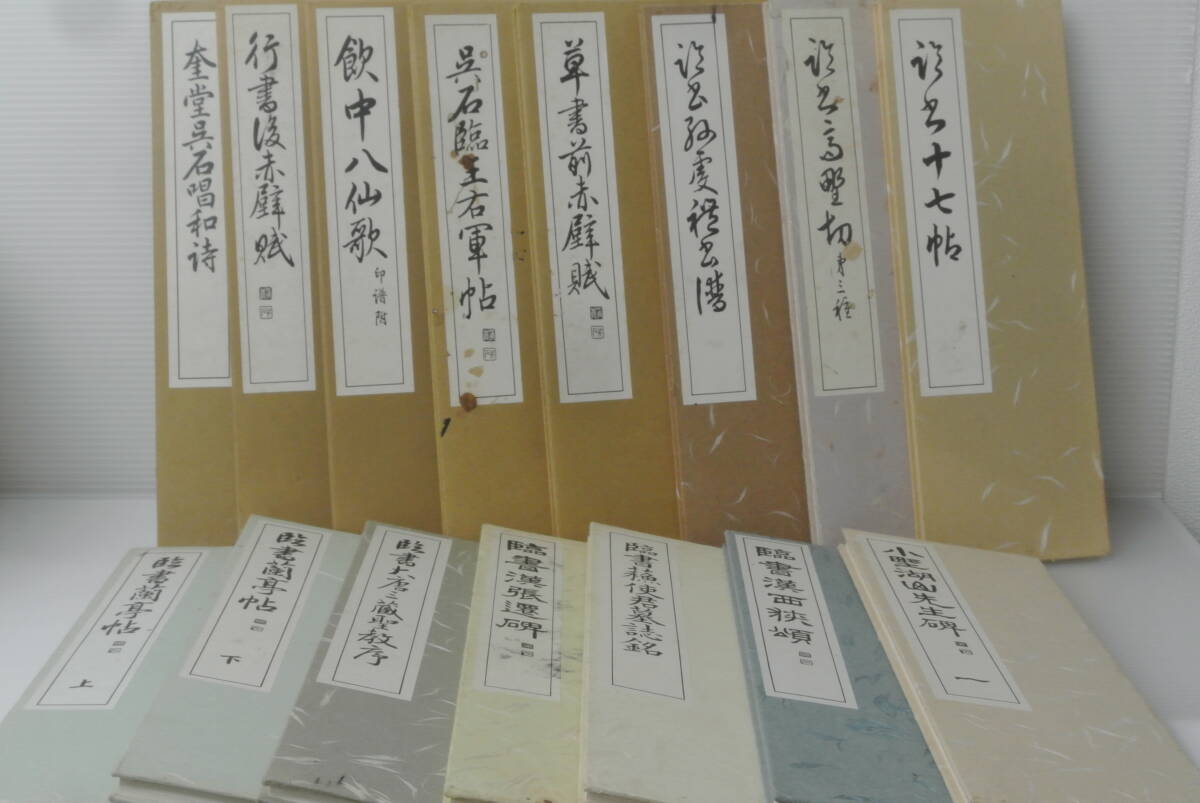 奎堂呉石唱和诗
行書後赤壁賦
飲中八仙歌
印譜附
呉石臨王右軍帖
草書前赤壁賦
臨書孫虔禮書譜
臨書高野切
第三種
臨書十七帖
臨書蘭亭帖
上
臨書蘭亭帖
下
臨書大唐三藏聖教序
臨書漢張遷碑
臨書漢西狹頌
一